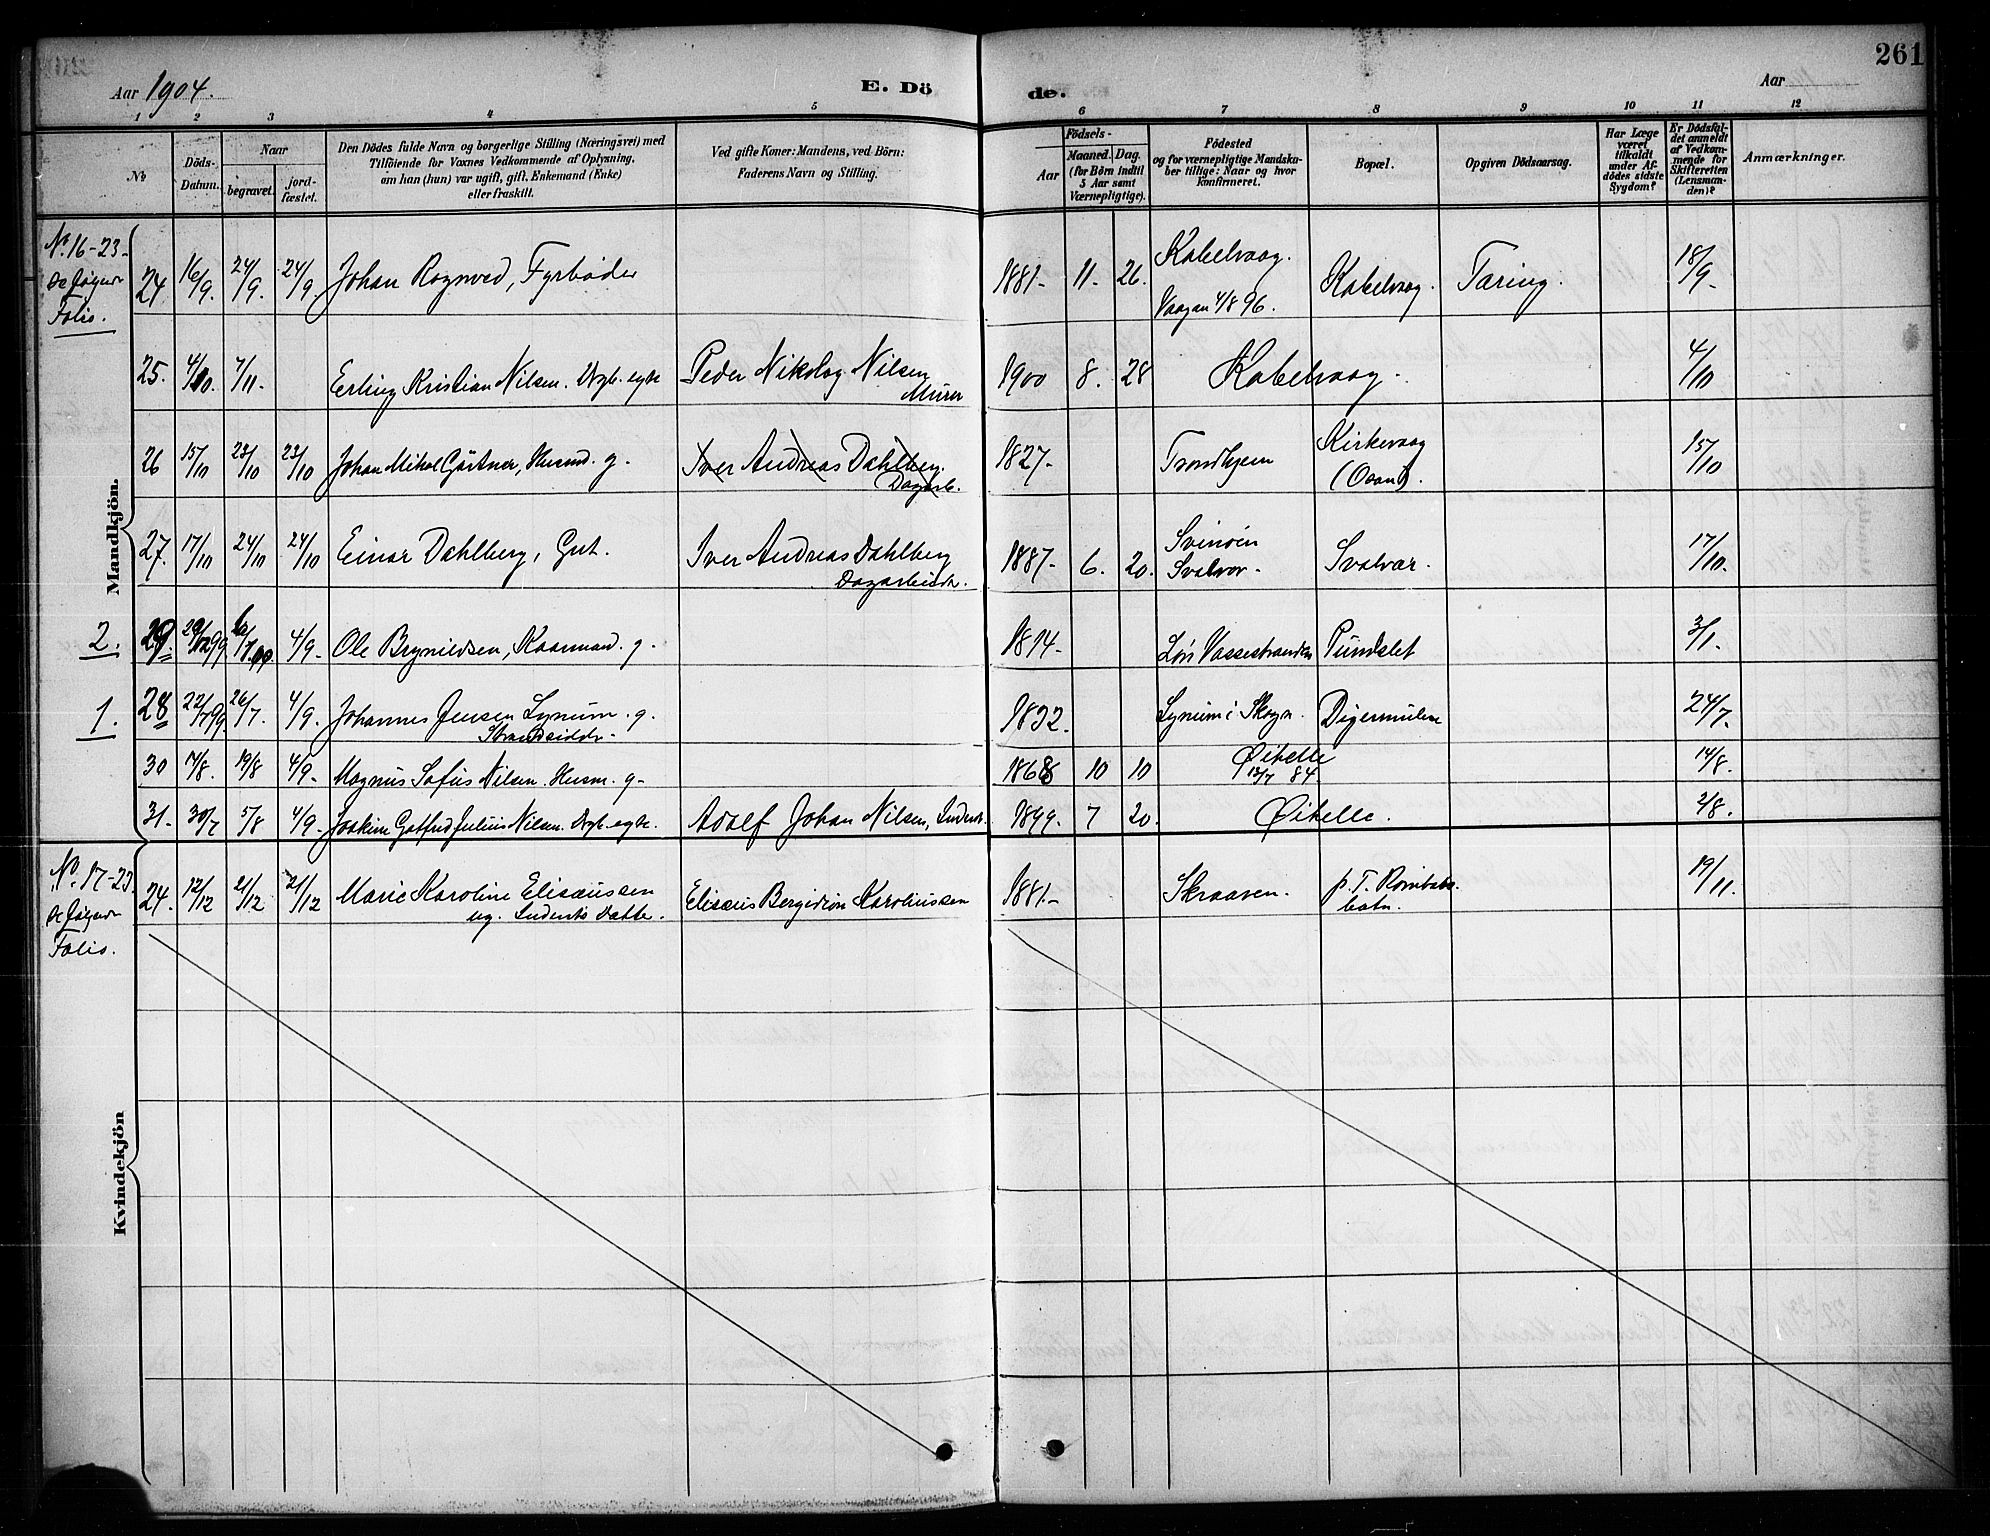 261
Aar 1904.
E. Dö
de.
Aar
1 2 3 4 5 6 7 8 9 10 11 12
No
Döds-Datum.
Naar
begravet.
jord-fæstet.
Den Dödes fulde Navn og borgerlige Stilling (Næringsvei) med
Tilföiende for Voxnes Vedkommende af Oplysning,
om han (hun) var ugift, gift, Enkemand (Enke)
eller fraskilt.
Ved gifte Koner: Mandens, ved Börn:
Faderens Navn og Stilling.
Födsels-
Aar
Maaned. Dag.
(for Börn indtil
5 Aar samt
Værnepligtige).
Födested
og for værnepligtige Mandska-
ber tillige: Naar og hvor
konfirmeret.
Bopæl.
Opgiven Dödsaarsag.
Har Læge
været
tilkaldt
under Af-
dödes sidste
Sygdom?
Er Dödsfal-
det anmeldt
af Vedkom-
mende for
Skifteretten
(Lensman-
den)?
Anmærkninger.
Mandkjön.
No. 16-23
Folio.
24 16/9. 24/9. 24/9 Johan Rognved, Fyrbøder 1881- 11. 26. Kabelvaag. Vaagan 4/8 96. Kabelvaag. Tæring. 18/9-
25. 4/10. 7/11. Erling Kristian Nilsen. Peder Nikolag Nilsen Murer 1900 8. 28 Kabelvaag. 4/10
26 15/10 23/10 23/10 Johan Mikal Gärtner, Husmd. g. Iver Andreas Dahlberg. Dagarb. 1827- Trondhjem Kirkevaag 15/10
27. 17/10 24/10 24/10 Einar Dahlberg, Gut. Iver Andreas Dahlberg Dagarbeider. 1887- 6. 20. Svinøen Svolvær. Svolvær. 17/10.
2. 29. 4/9- Ole Brynildsen, Kaarmand. g. 1814- Vassestranden Pundslet 3/1.
1. 28 26/7. 4/9. Johannes Jensen Lynum. g. Strandsidder. 1832. Lynum i Skogn. Digermulen 24/7.
30 14/8. 19/8 4/9- Magnus Sofus Nilsen. Husm. g- 1868 10 10 Øihelle 13/7 84 14/8.
31. 30/7 5/8 4/9- Joakim Gotfred Julius Nilsen. Adolf Johan Nilsen, Inderst. 1899. 7 20. Øihelle. 2/8.
Kvindekjön
No. 17-23
Folio.
24. 12/12 21/12 21/12 Marie Karoline Elisæussen ug. Indersts Datter. Elisæus Bergidion Karoliussen 1881.- Skraaven. p. T. Rombaks-botn. 19/11.